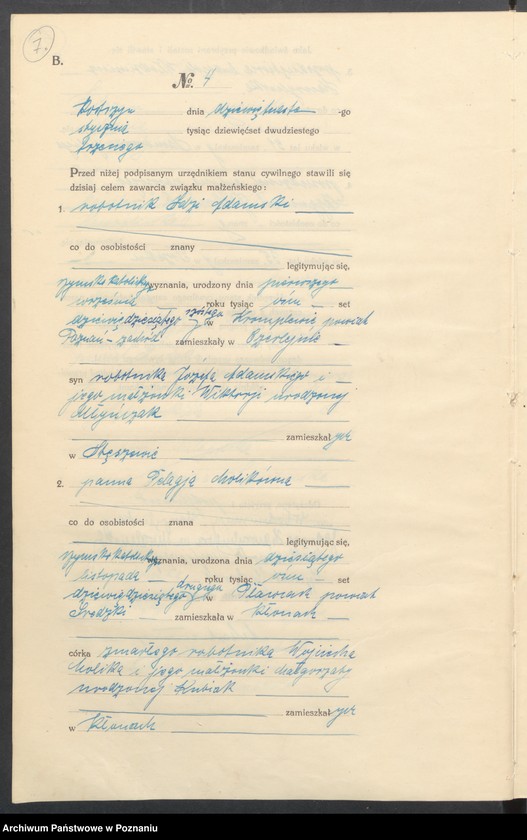 7.
B.
No. 4
dnia dziewiętnasto -go
stycznia tysiąc dziewięćset dwudziestego
trzeciego
Przed niżej podpisanym urzędnikiem stanu cywilnego stawili się
dzisiaj celem zawarcia związku małżeńskiego:
1. robotnik Idzi Adamski
co do osobistości znany
legitymując się,
rzymsko katolickiego wyznania, urodzony dnia pierwszego
września roku tysiąc ośm set
dziewięćdziesiątego szóstego w powiat
Poznań - zachód zamieszkały w
syn robotnika Józefa Adamskiego i
jego małżonki Wiktorji urodzonej
zamieszkał ych
w Stęszewie
2. panna Pelagja Molikówna
co do osobistości znana
legitymując się,
rzymsko katolickiego wyznania, urodzona dnia dziesiątego
listopada roku tysiąc ośm set
dziewięćdziesiątego drugiego w Pławcach powiat
Średzki zamieszkała w Kłonach
córka zmarłego robotnika Wojciecha
Molika i jego małżonki Małgorzaty
urodzonej Kubiak
zamieszkał ych
w Kłonach
Archiwum Państwowe w Poznaniu